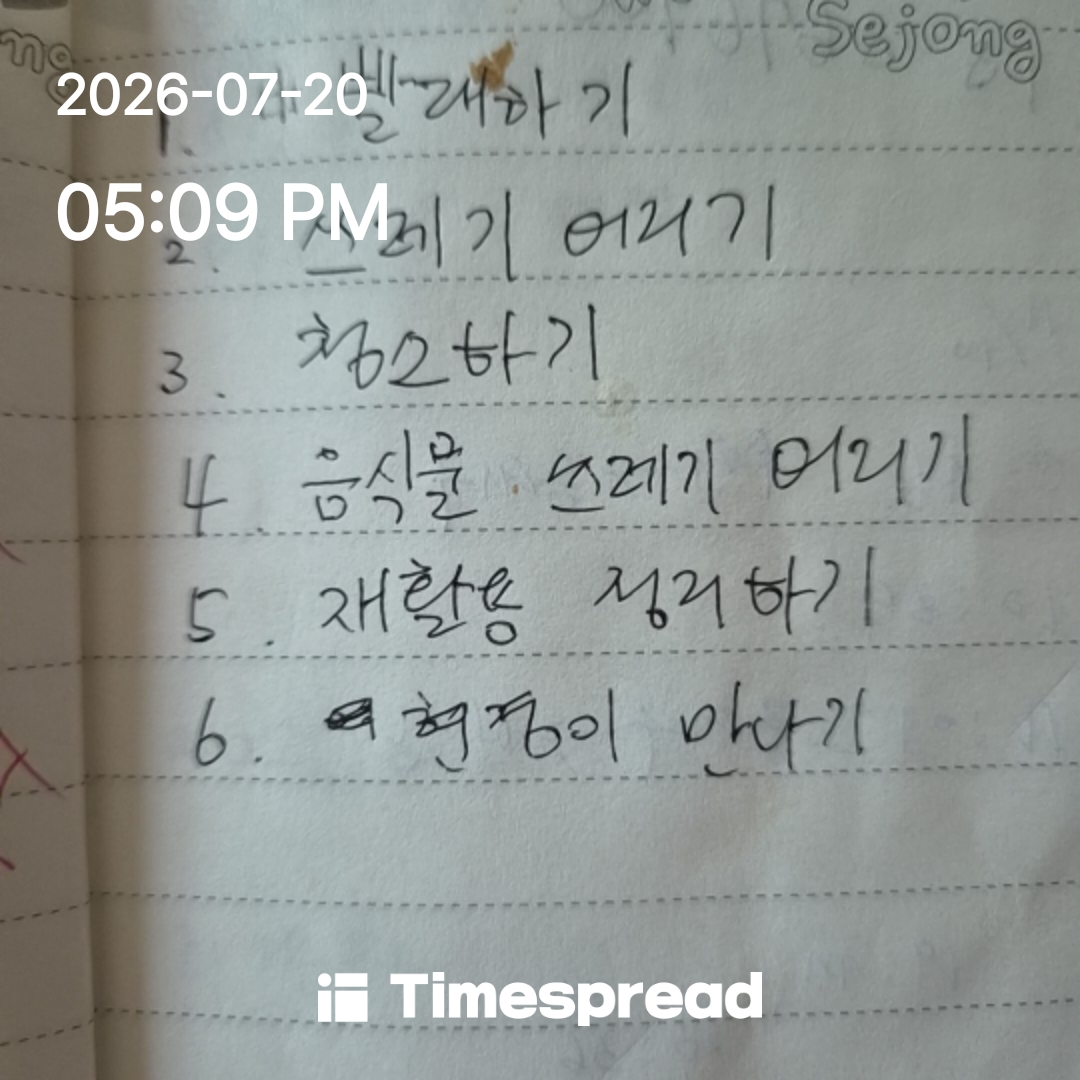 Sejong
2026-07-20
1. 빨래하기
05:09 PM
2. 쓰레기 버리기
3. 청소하기
4. 음식물 쓰레기 버리기
5. 재활용 정리하기
6. 현정이 만나기
Timespread